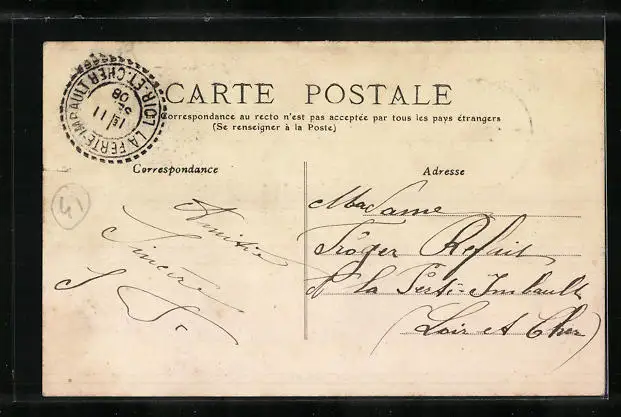 CARTE POSTALE
Correspondance au recto n'est pas acceptée par tous les pays étrangers
(Se renseigner à la Poste)
LA FERTE-IMBAULT LOIR-ET-CHER
11
08
Correspondance
Adresse
41
Amitié
Sincère
Madame
Tröger Refait
à la Ferté-Imbault
(Loir et Cher)